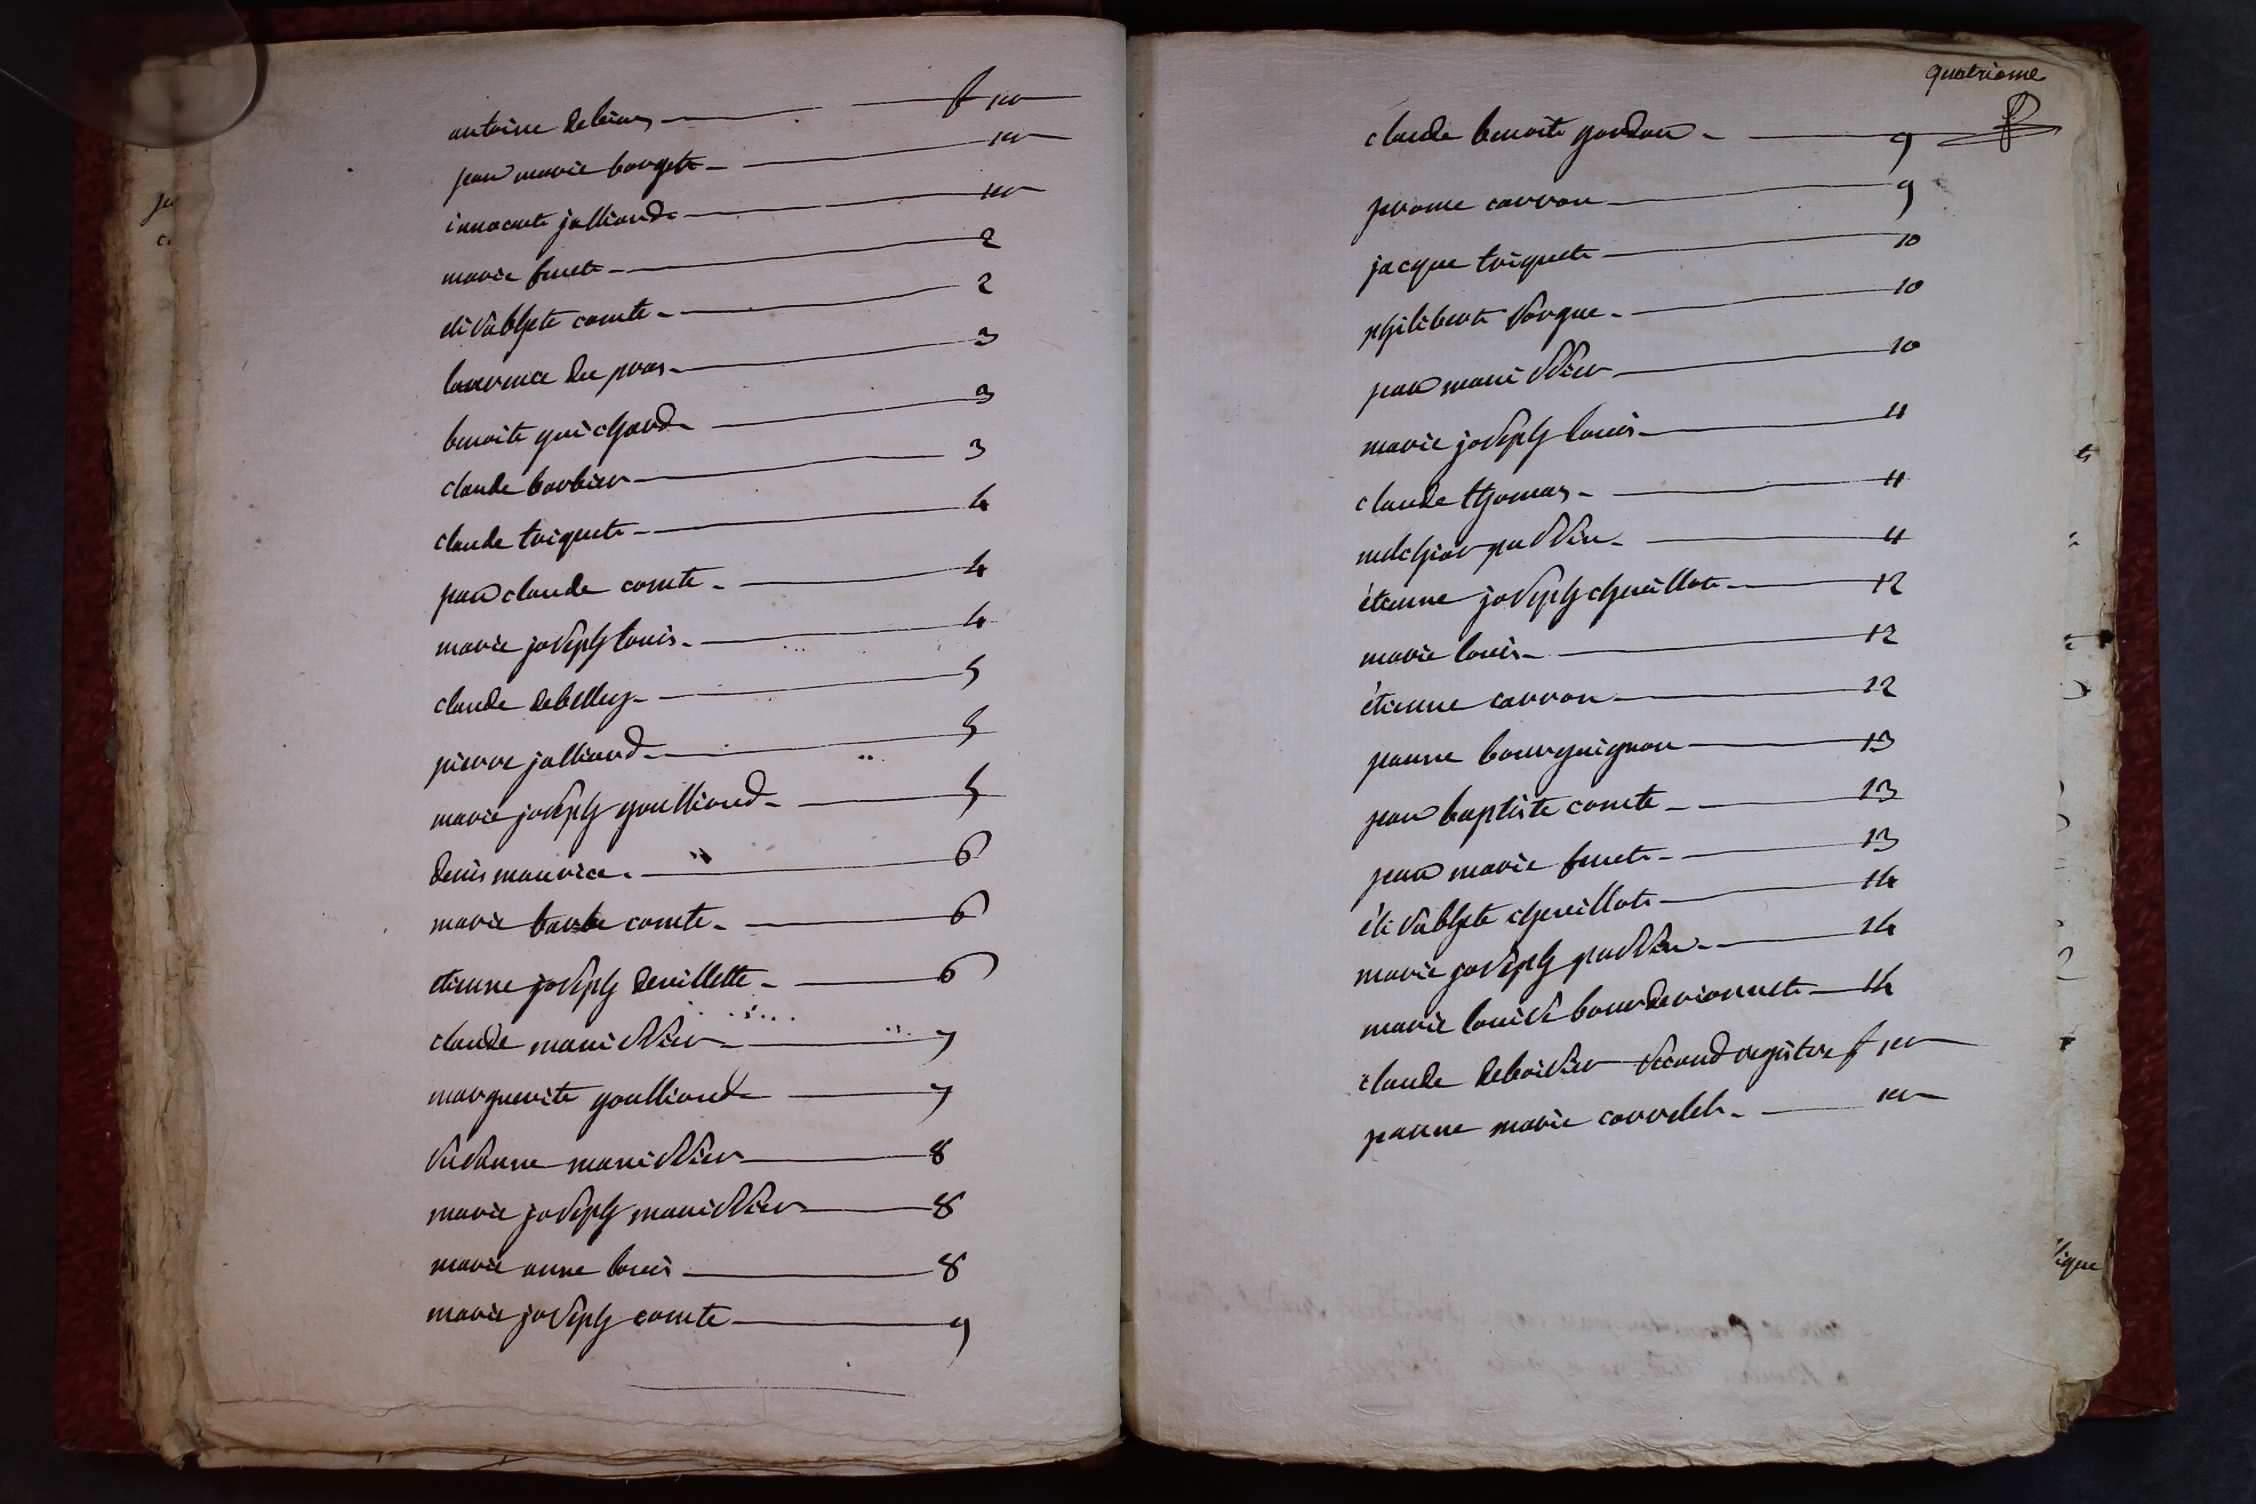 antoine debias f 1er
jean marie borget 1er
innocente jalliard 1er
marie feuct 2
elisabhete comte 2
laurence du pras 3
benoite guichard 3
claude barbier 3
claude triquet 4
jean claude comte 4
marie joseph louis 4
claude debelley 5
pierre jalliard 5
marie joseph goulliard 5
denis maurice 6
marie barbe comte 6
etienne joseph devillette 6
claude manissier 7
marguerite goulliard 7
susanne manissier 8
marie joseph manissier 8
marie anne louis 8
marie joseph comte 9
quatrieme
claude benoite gordon 9
jerome carron 9
jacque triquet 10
philibert sorgue 10
jean manissier 10
marie joseph louis 11
claude thomas 11
melchior pussin 11
étienne joseph chevillot 12
marie louis 12
étienne carron 12
jeanne bourguignon 13
jean baptiste comte 13
jean marie feuct 13
élisabhete chevillot 14
marie joseph pussin 14
marie louise bourderionnet 14
claude deboisier second registre f 1er
jeanne marie carrelet 1er